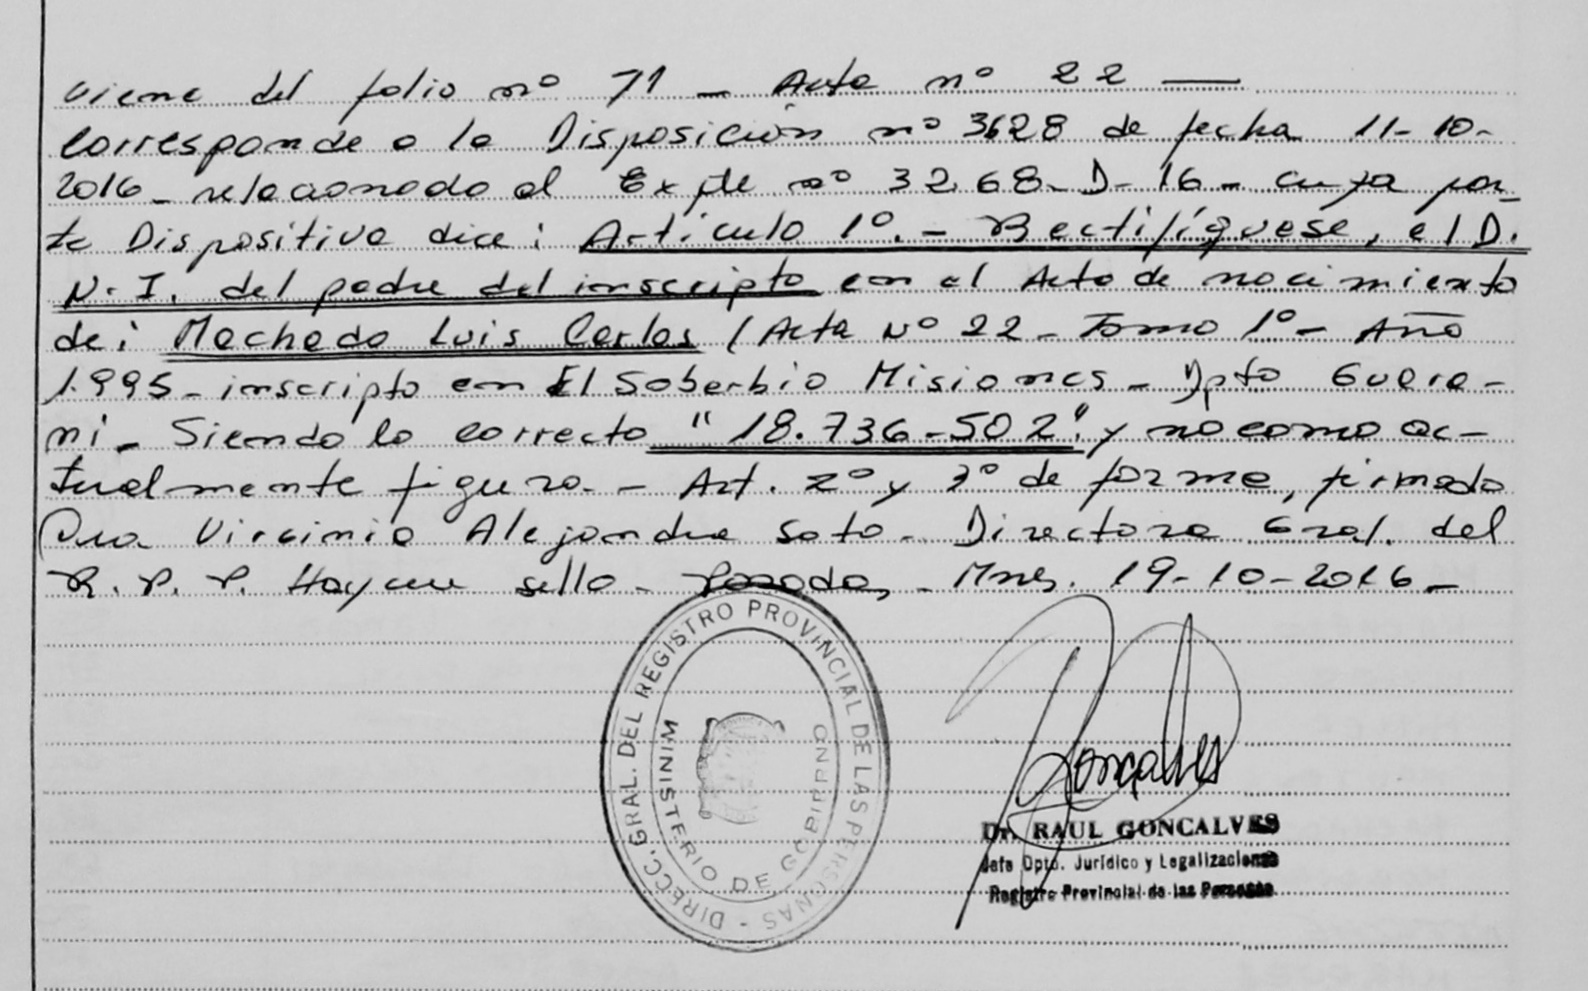 viene del folio nº 71 - Acta nº 22 ——
corresponde a la Disposición nº 3628 de fecha 11-10-
2016- relacionado al Expte nº 3268-D-16- cuya par-
te Dispositiva dice: Artículo 1º.- Rectifíquese, el D.
N.I. del padre del inscripto en el Acta de nacimiento
de: Machado Luis Carlos (Acta Nº 22- Tomo 1º- Año
1.995- inscripto en El Soberbio Misiones- Dpto Guara-
ní- Siendo lo correcto "18.736-502" y no como ac-
tualmente figura.- Art. 2º y 3º de forma, firmado
Dra Virginia Alejandra Soto- Directora Gral. del
R.P.P. Hay un sello- Posadas, - Mnes. 19-10-2016-
DIRECC. GRAL. DEL REGISTRO PROVINCIAL DE LAS PERSONAS -
MINISTERIO DE GOBIERNO
Goncalves
Dr. RAUL GONCALVES
Jefe Dpto. Jurídico y Legalizaciones
Registro Provincial de las Personas